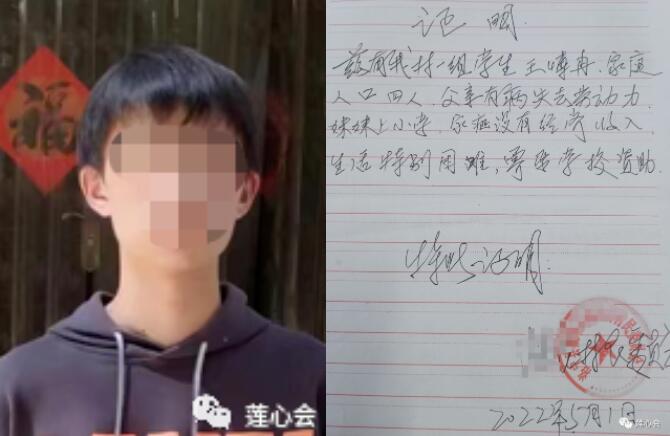 福
莲心会
证明
兹有我村一组学生王博冉,家庭
人口四人,父亲有病失去劳动力,
妹妹上小学,家庭没有经常收入
生活特别困难,需要学校资助.
特此证明.
2022年5月1日
莲心会